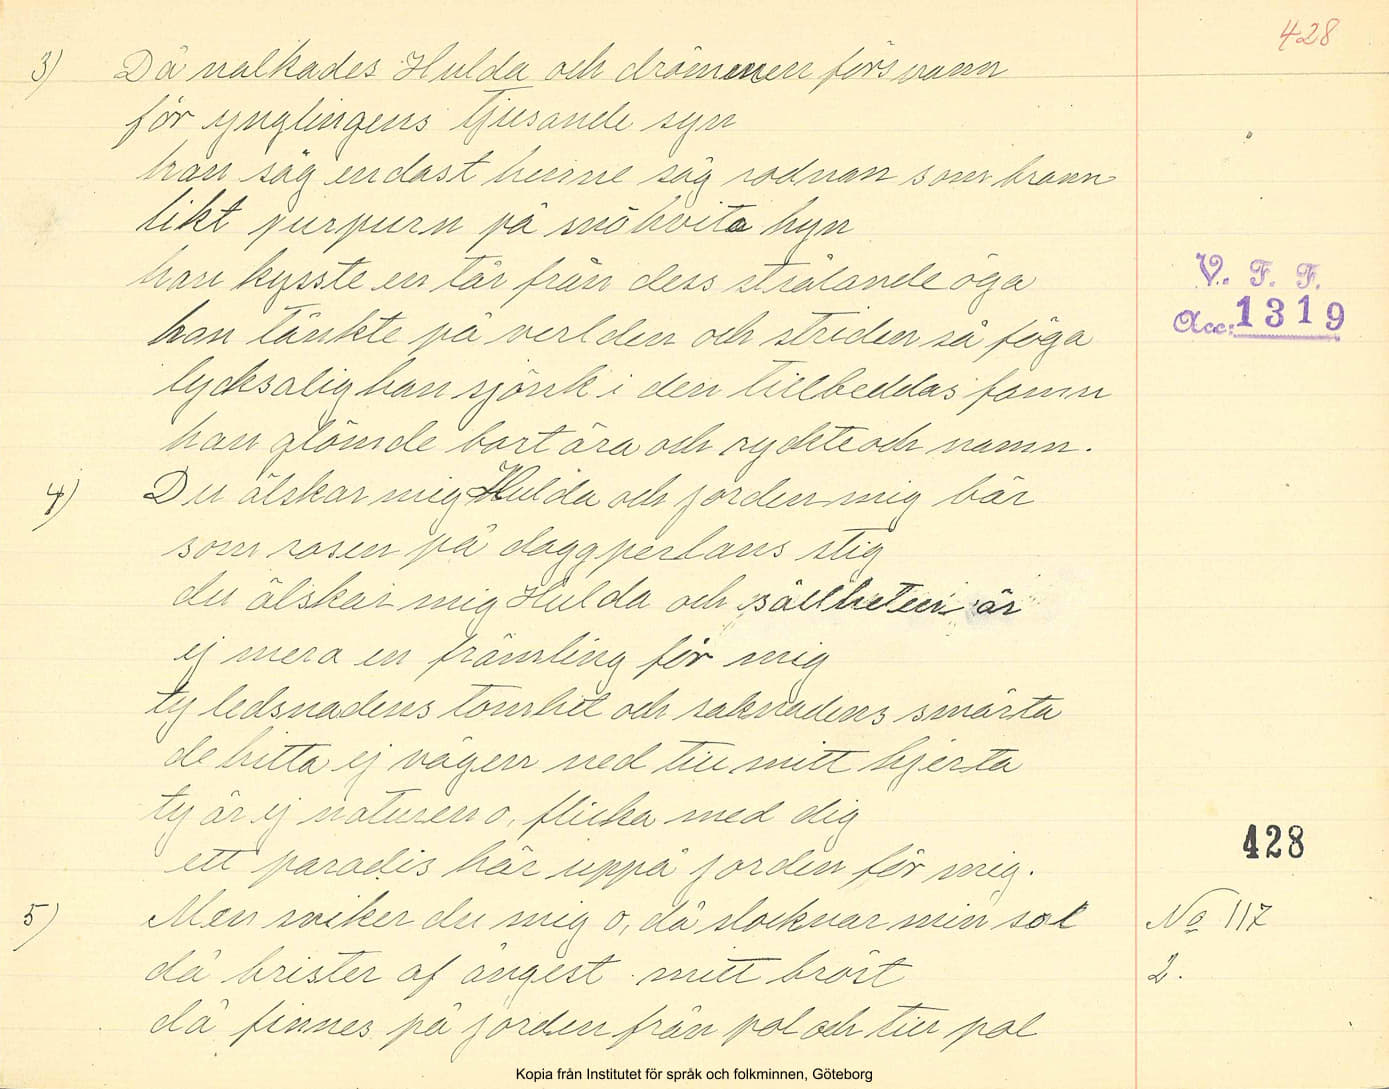 428
3) Då nalkades Hulda och drömmen försvann
för ynglingens tjusande syn
han såg endast henne såg rodnan som brann
likt purpurn på snöhvita hyn
han kysste en tår från dess strålande öga
V. F. F.
Acc: 1319
han tänkte på verlden och striden så föga
lycksalig han sjönk i den tillbeddas famn
han glömde bort ära och ryckte och namn.
4) Du älskar mig Hulda och jorden mig bär
som rosen på daggperlans stig
du älskar mig Hulda och sällheten är
ej mera en främling för mig
ty ledsnadens tomhet och saknadens smärta
de hitta ej vägen ned till mitt hjerta
ty är ej naturen o, flicka med dig
428
ett paradis här uppå jorden för mig.
5) Men sviker du mig o, då slocknar min sol
No 117
då brister af ångest mitt bröst
2.
då finnes på jorden från pol och till pol
Kopia från Institutet för språk och folkminnen, Göteborg